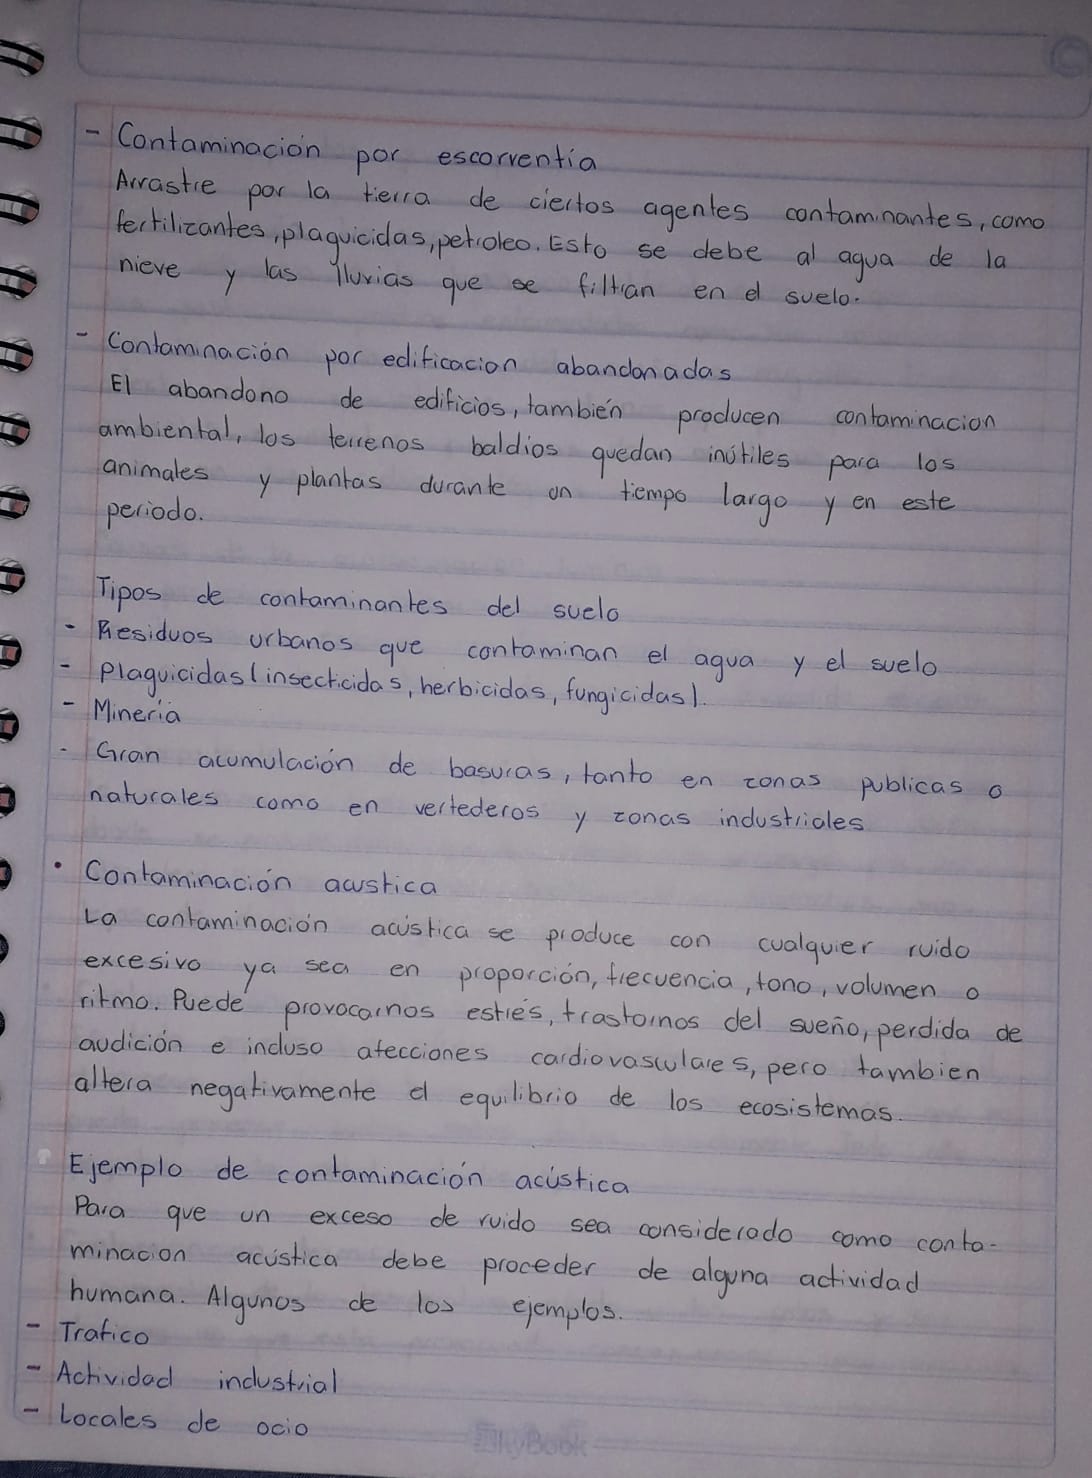 - Contaminación por escorrentía
Arrastre por la tierra de ciertos agentes contaminantes, como
fertilizantes, plaguicidas, petroleo. Esto se debe al agua de la
nieve y las lluvias que se filtran en el suelo.
- Contaminación por edificacion abandonadas
El abandono de edificios, también producen contaminacion
ambiental, los terrenos baldios quedan inútiles para los
animales y plantas durante un tiempo largo y en este
periodo.
Tipos de contaminantes del suelo
- Residuos urbanos que contaminan el agua y el suelo
- Plaguicidas (insecticidas, herbicidas, fungicidas).
- Minería
- Gran acumulación de basuras, tanto en zonas publicas o
naturales como en vertederos y zonas industriales
• Contaminación acustica
La contaminación acústica se produce con cualquier ruido
excesivo ya sea en proporción, frecuencia, tono, volumen o
ritmo. Puede provocarnos estrés, trastornos del sueño, perdida de
audición e incluso afecciones cardiovasculares, pero tambien
altera negativamente el equilibrio de los ecosistemas.
Ejemplo de contaminación acústica
Para que un exceso de ruido sea considerado como conta-
minacion acústica debe proceder de alguna actividad
humana. Algunos de los ejemplos.
- Trafico
- Actividad industrial
- Locales de ocio